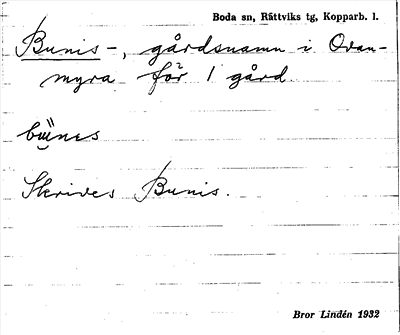 Boda sn, Rättviks tg, Kopparb. l.
Bunis-, gårdsnamn i Ovan-
myra för 1 gård.
Skrives Bunis.
Bror Lindén 1932